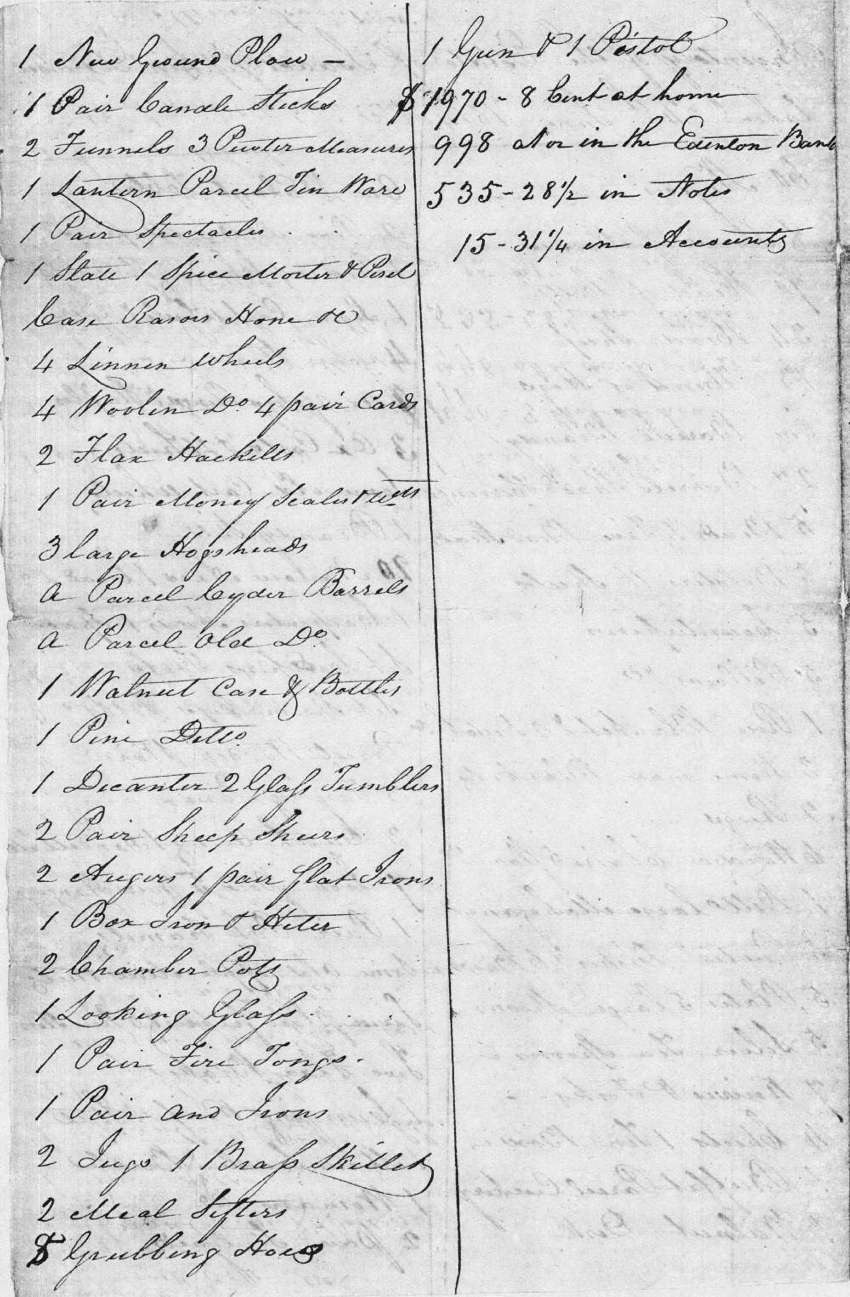 1 New Ground Plow —
1 Pair Candle Sticks
2 Funnels 3 Pewter Measures
1 Lantern Parcel Tin Ware
1 Pair Spectacles
1 Slate 1 Spice Morter & Pesel
Case Rasors Hone &c
4 Linnen Wheels
4 Woolin Do 4 pair Cards
2 Flax Hackells
1 Pair Money Scales & Wts
3 large Hogsheads
a Parcel Cyder Barrels
a Parcel Old Do
1 Walnut Case & Bottles
1 Pine Ditto
1 Decanter 2 Glass Tumblers
2 Pair Sheep Shears
2 Augers 1 pair flat Irons
1 Box Iron & Heter
2 Chamber Pots
1 Looking Glass
1 Pair Fire Tongs
1 Pair and Irons
2 Jugs 1 Brass Skillet
2 Meal Sifters
Grubbing Hoes
1 Gun & 1 Pistol
$1970 - 8 Cent at home
998 at or in the Edenton Bank
535 - 28 1/2 in Notes
15 - 31 1/4 in Accounts